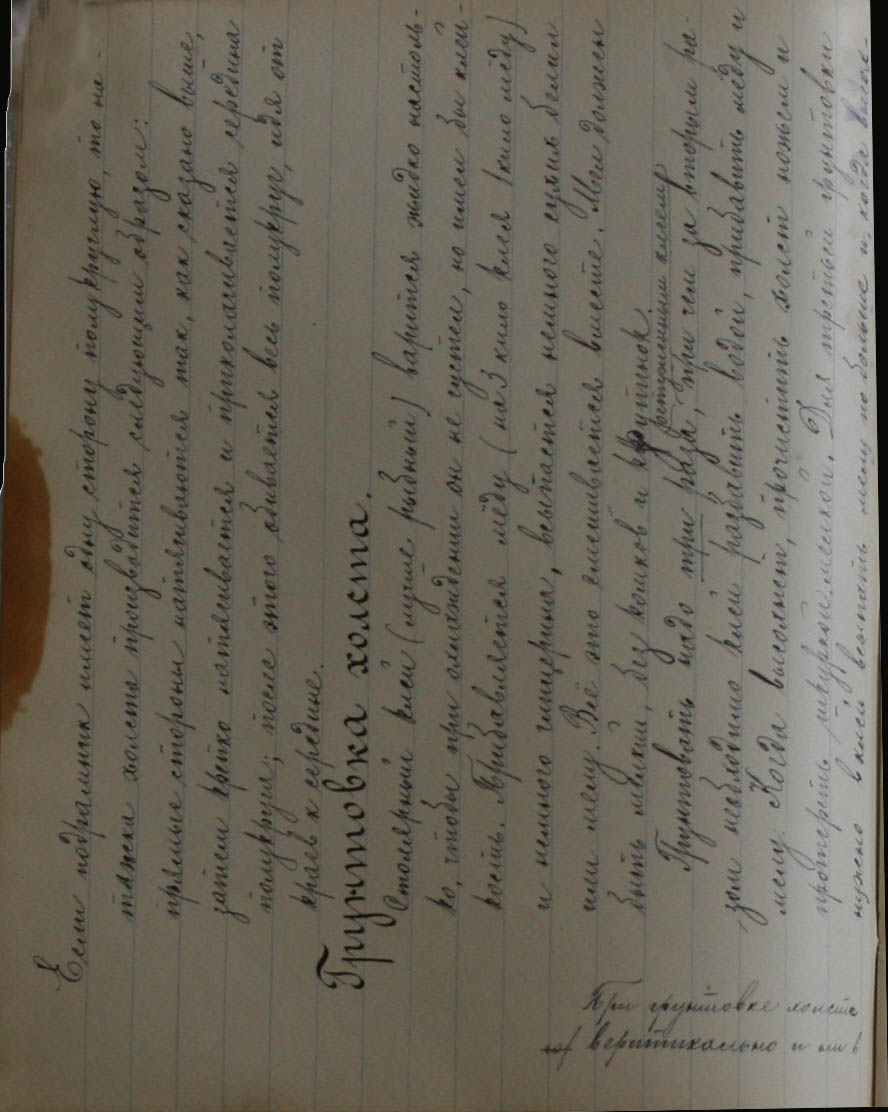 Если подрамник имеет одну сторону полукруглую, то на-
тяжка холста производится следующим образом:
прямые стороны натягиваются так, как сказано выше,
затем крепко натягивается и приколачивается середина
полукруга; после этого обивается весь полукруг, идя от
краев к середине.
Грунтовка холста.
Столярный клей (лучше рыбный) варится жидко настоль-
ко, чтобы при охлаждении он не густел, но имел бы клей-
кость. Прибавляется мёду (на 3 кило клея 1 кило мёду)
и немного глицерина, всыпается немного сухих белил
или мелу. Всё это смешивается вместе. Мел должен
быть мелкий, без комков и крупинок.
разреженным клеем
Грунтовать надо три раза, при чем за вторым ра-
зом необходимо клей разбавить водой, прибавить мёду и
мелу. Когда высохнет, прочистить холст ножем и
протереть шкуркой мелкой. Для третьей грунтовки
нужно в клей всыпать мелу по больше и, когда высох-
При грунтовке холста
вертикально и ни в